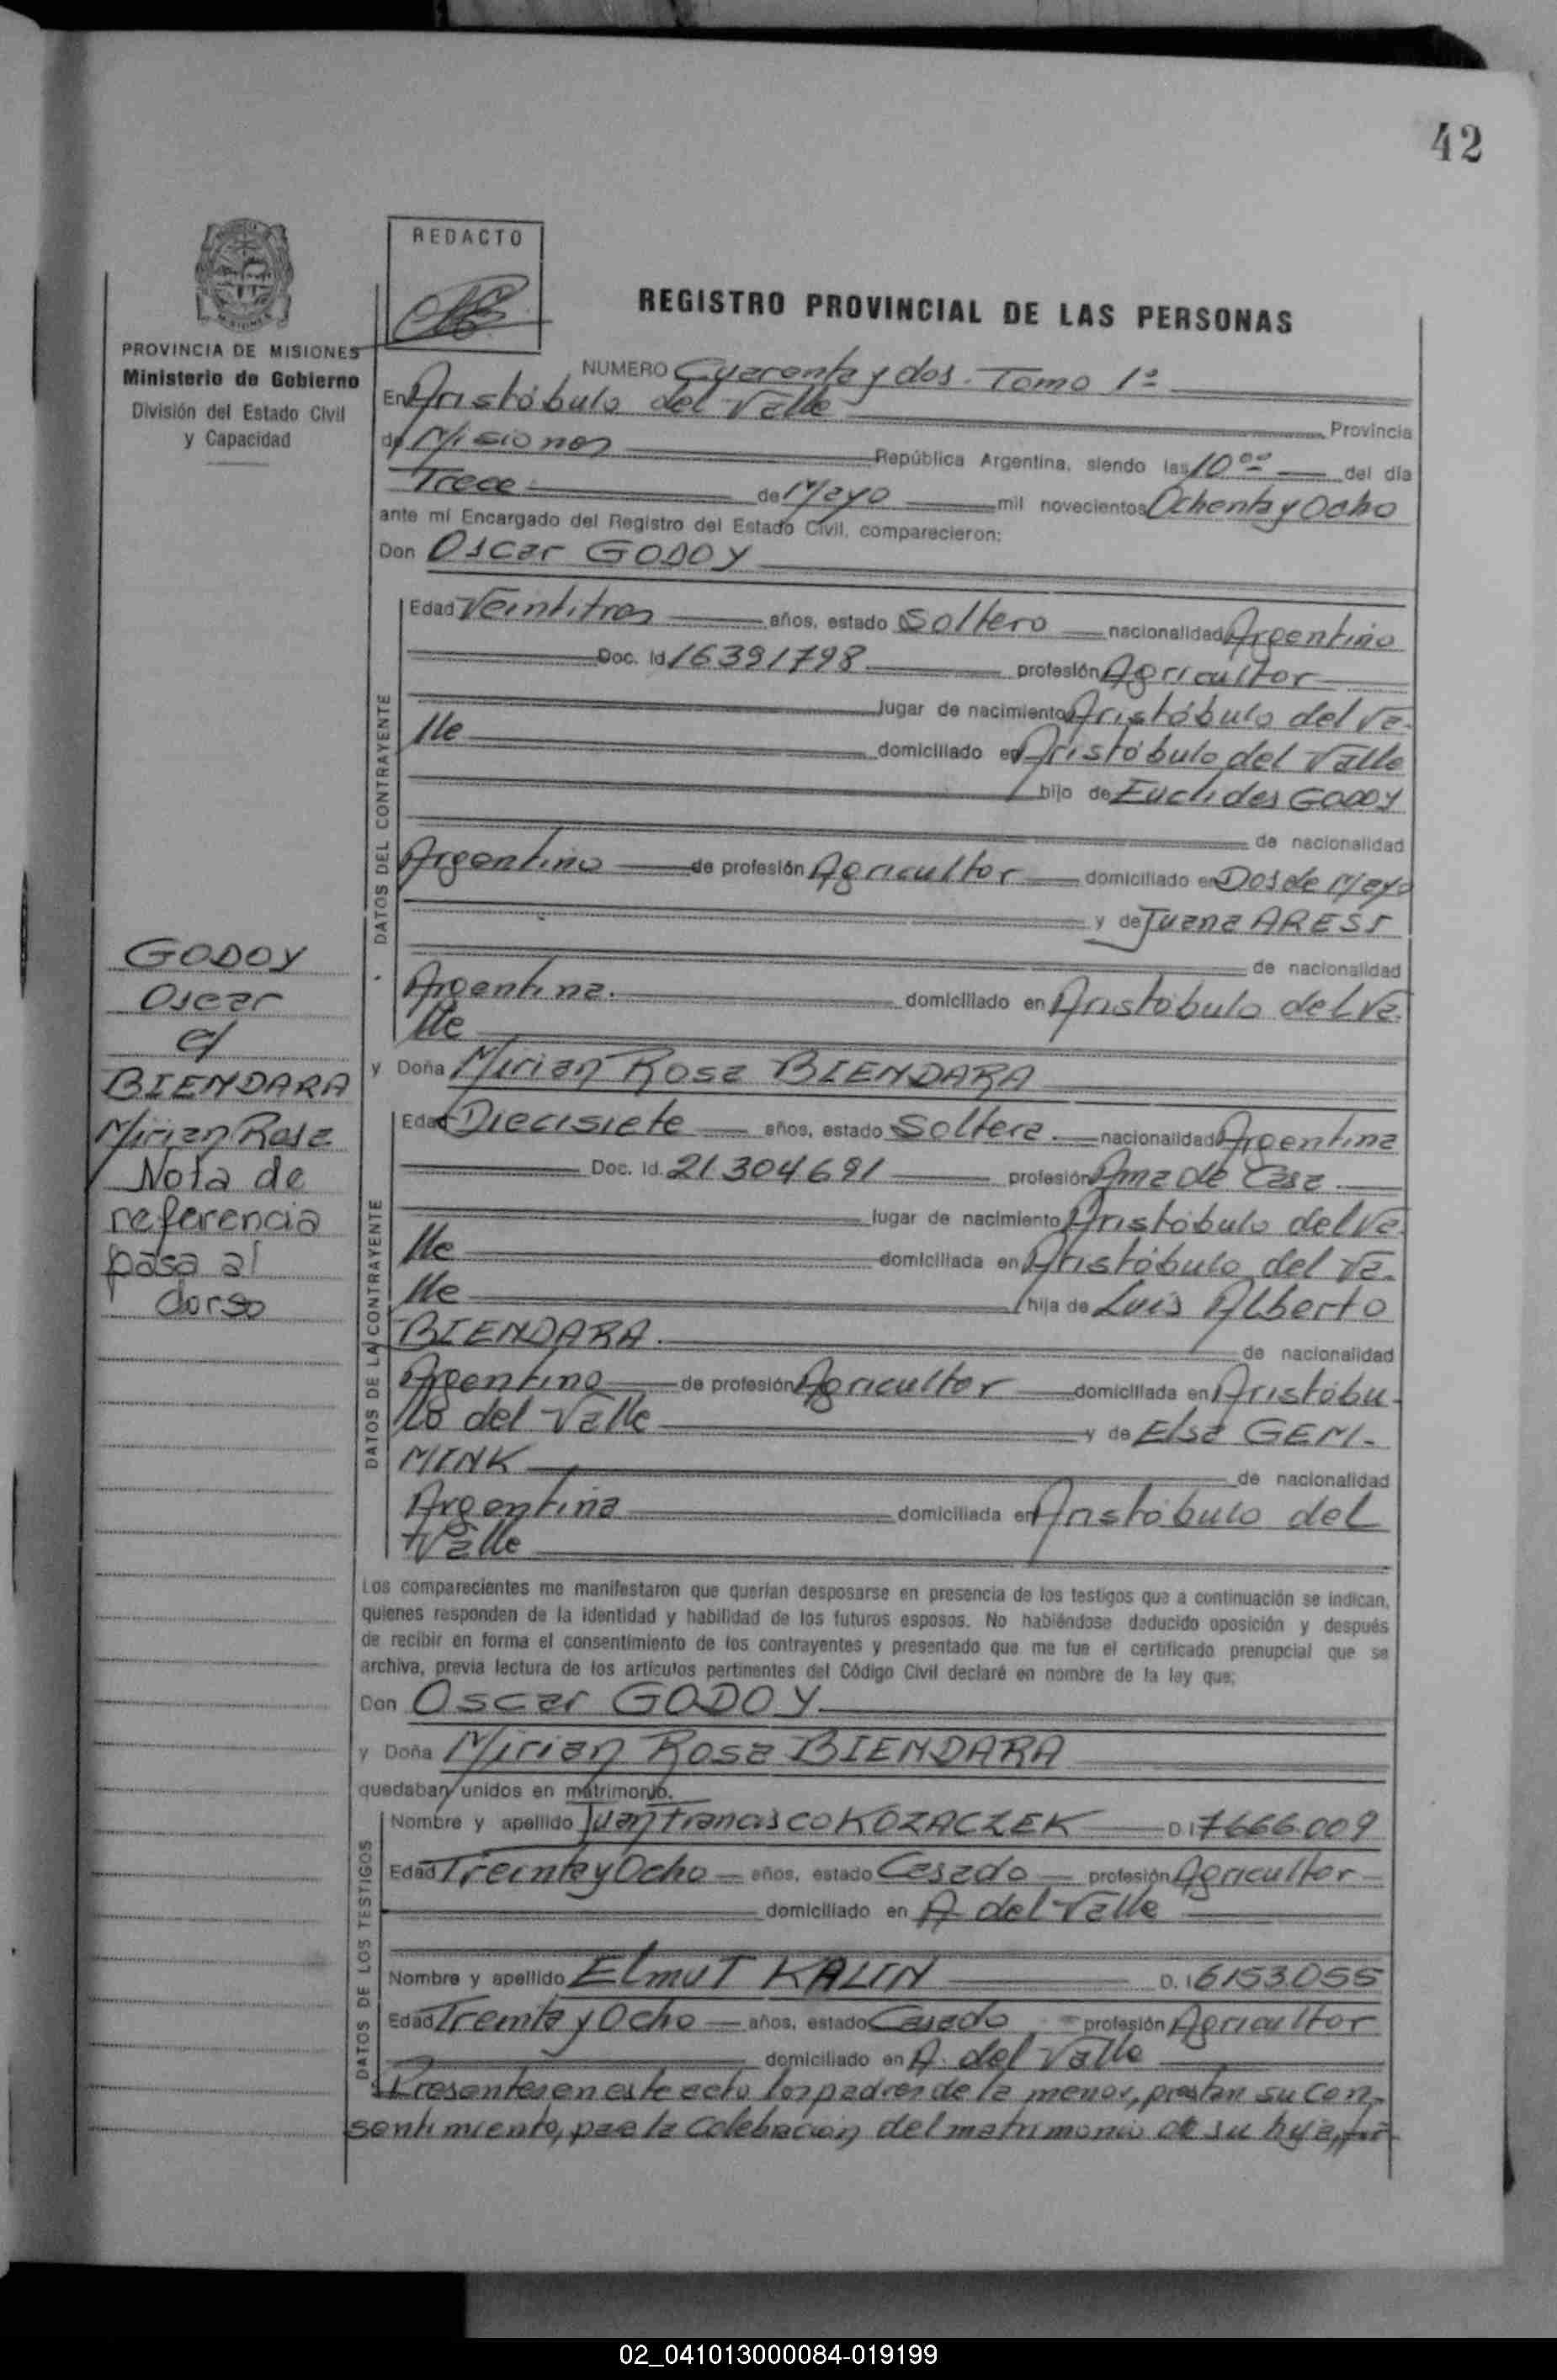 42
REDACTO
REGISTRO PROVINCIAL DE LAS PERSONAS
PROVINCIA DE MISIONES
Ministerio de Gobierno
División del Estado Civil
y Capacidad
NUMERO Cuarenta y dos. Tomo 1º
En Aristóbulo del Valle Provincia
de Misiones República Argentina, siendo las 10⁰⁰ del día
Trece de Mayo mil novecientos Ochenta y Ocho
ante mi Encargado del Registro del Estado Civil, comparecieron:
Don Oscar GODOY
DATOS DEL CONTRAYENTE
Edad Veintitres años, estado Soltero nacionalidad Argentino
Doc. Id 16391798 profesión Agricultor
lugar de nacimiento Aristóbulo del Va-
lle domiciliado en Aristóbulo del Valle
hijo de Euclides GODOY
de nacionalidad
Argentino de profesión Agricultor domiciliado en Dos de Mayo
y de Juana ARESI
de nacionalidad
Argentina. domiciliado en Aristóbulo del Va-
lle
GODOY
Oscar
c/
BIENDARA
Mirian Rosa
Nota de
referencia
pasa al
dorso
y Doña Mirian Rosa BIENDARA
DATOS DE LA CONTRAYENTE
Edad Diecisiete años, estado Soltera nacionalidad Argentina
Doc. Id. 21304691 profesión Ama de Casa
lugar de nacimiento Aristóbulo del Va-
lle domiciliada en Aristóbulo del Va-
lle hija de Luis Alberto
BIENDARA. de nacionalidad
Argentino de profesión Agricultor domiciliada en Aristóbu-
lo del Valle y de Elsa GEM-
MINK de nacionalidad
Argentina domiciliada en Aristóbulo del
Valle
Los comparecientes me manifestaron que querían desposarse en presencia de los testigos que a continuación se indican,
quienes responden de la identidad y habilidad de los futuros esposos. No habiéndose deducido oposición y después
de recibir en forma el consentimiento de los contrayentes y presentado que me fue el certificado prenupcial que se
archiva, previa lectura de los artículos pertinentes del Código Civil declaré en nombre de la ley que;
Don Oscar GODOY
y Doña Mirian Rosa BIENDARA
quedaban unidos en matrimonio.
DATOS DE LOS TESTIGOS
Nombre y apellido Juan Francisco KOZACZEK D.I 7666.009
Edad Treinta y Ocho años, estado Casado profesión Agricultor
domiciliado en A. del Valle
Nombre y apellido Elmut KALIN D. I 6153055
Edad Treinta y Ocho años, estado Casado profesión Agricultor
domiciliado en A. del Valle
Presentes en este acto los padres de la menor, prestan su con-
sentimiento, para la celebración del matrimonio de su hija,
02_041013000084-019199